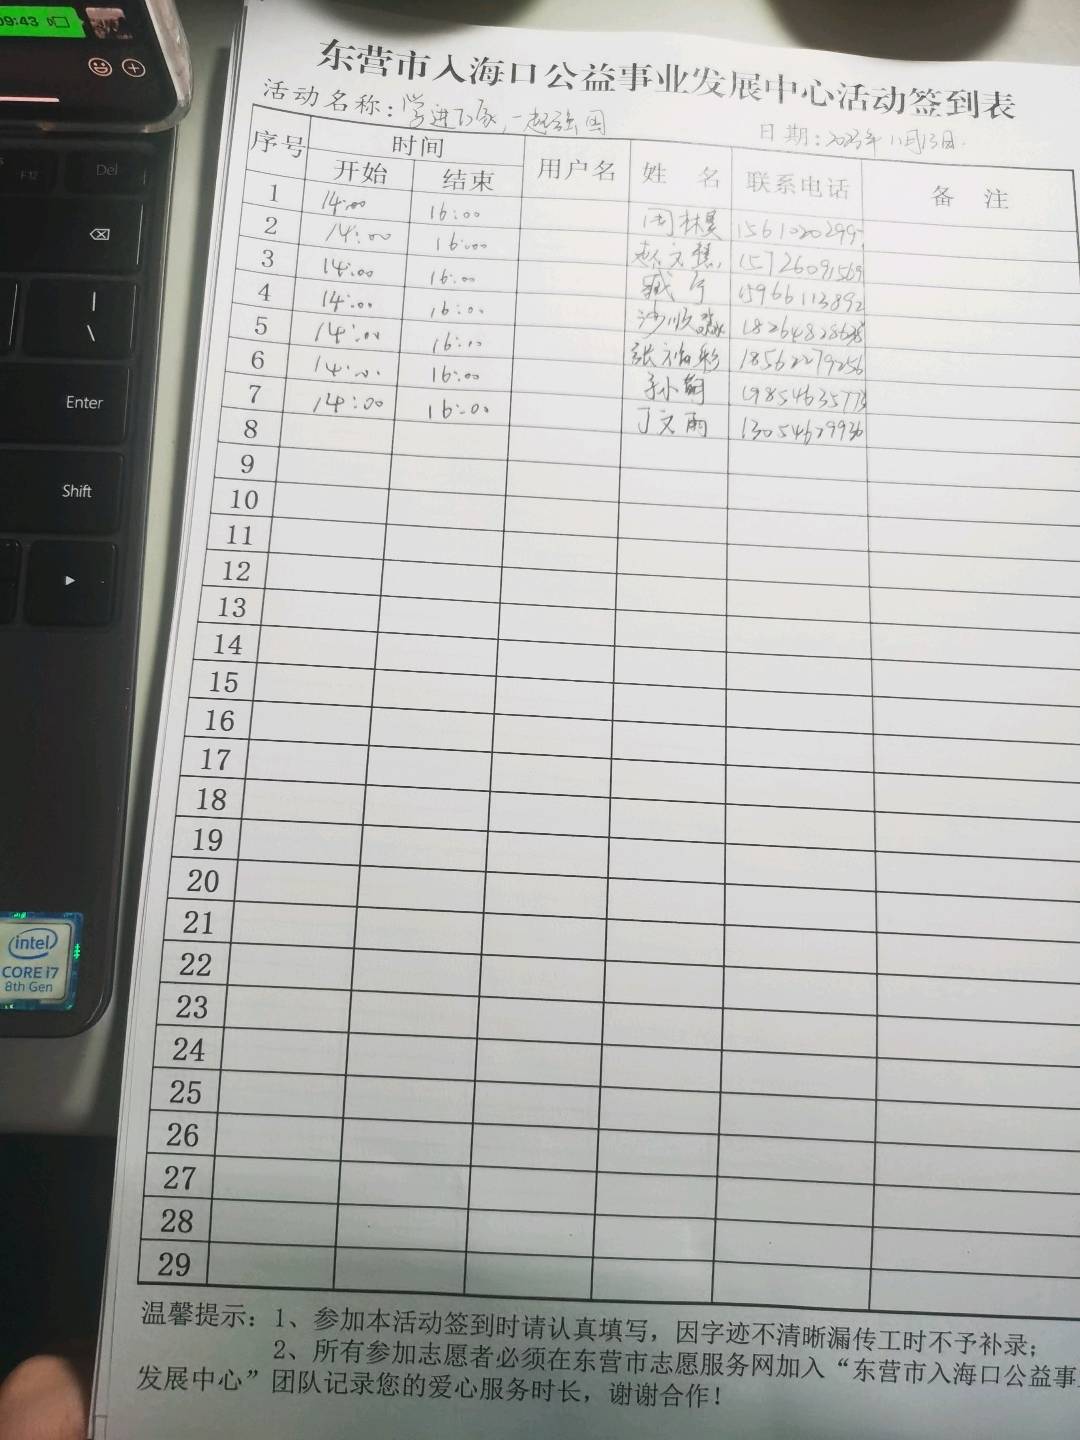 09:43
F12
Del
Enter
Shift
|
\
intel
CORE i7
8th Gen
东营市入海口公益事业发展中心活动签到表
活动名称：学进万家，一起强国 日期：2023年11月13日
序号 时间 用户名 姓 名 联系电话 备 注
开始 结束
1 14:00 16:00 1561020299
2 14:00 16:00 15726091569
3 14:00 16:00 臧宁 15966113892
4 14:00 16:00
5 14:00 16:00 18562279256
6 14:00 16:00 19854635773
7 14:00 16:00 丁文雨 13054679936
8
9
10
11
12
13
14
15
16
17
18
19
20
21
22
23
24
25
26
27
28
29
温馨提示：1、参加本活动签到时请认真填写，因字迹不清晰漏传工时不予补录；
2、所有参加志愿者必须在东营市志愿服务网加入“东营市入海口公益事
发展中心”团队记录您的爱心服务时长，谢谢合作！